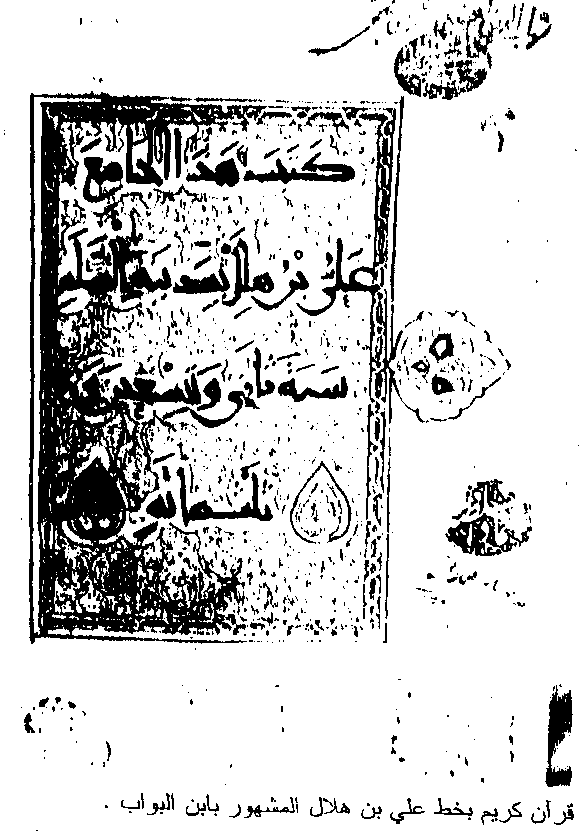 كتب هذا الجامع
علي بن هلال بمدينة السلم
سنة وتسعين و
ثلثمائة
قرآن كريم بخط علي بن هلال المشهور بابن البواب .